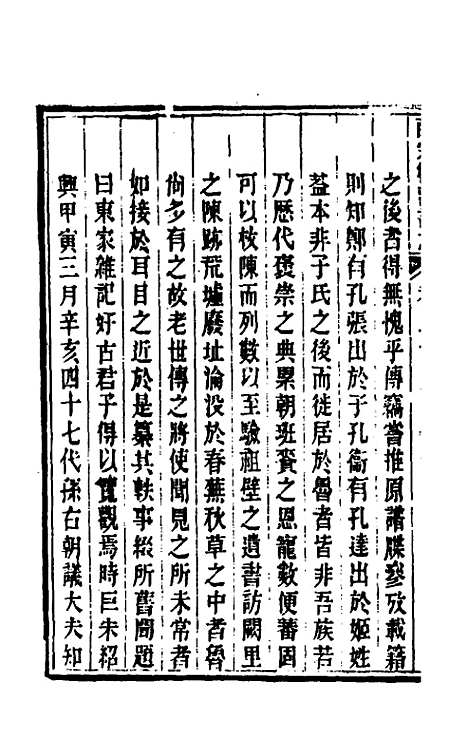 之後者得無愧乎傳竊嘗推原譜牒參攷載籍
則知鄭有孔張出於子孔衞有孔達出於姬姓
蓋本非子氏之後而徙居於魯者皆非吾族若
乃歷代褒崇之典累朝班賚之恩寵數便蕃固
可以枚陳而列數以至驗祖壁之遺書訪闕里
之陳跡荒墟廢址淪没於春蕪秋草之中者魯
尙多有之故老世傳之將使聞見之所未常者
如接於耳目之近於是纂其軼事綴所舊聞題
曰東家雜記好古君子得以覽觀焉時巨宋紹
興甲寅三月辛亥四十七代孫右朝議大夫知